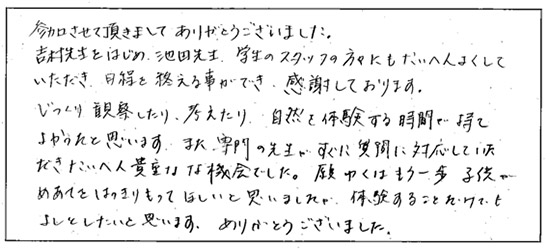 参加させて頂きましてありがとうございました。
吉村先生をはじめ、池田先生、学生のスタッフの方々にもたいへんよくして
いただき、日程を終える事ができ、感謝しております。
じっくり観察したり、考えたり、自然を体験する時間が得て
よかったと思います。また、専門の先生がすぐに質問に対応していた
だきたいへん貴重なな機会でした。願わくはもう一歩子供が
めあてをはっきりもってほしいと思いましたが、体験することだけでも
よしとしたいと思います。ありがとうございました。